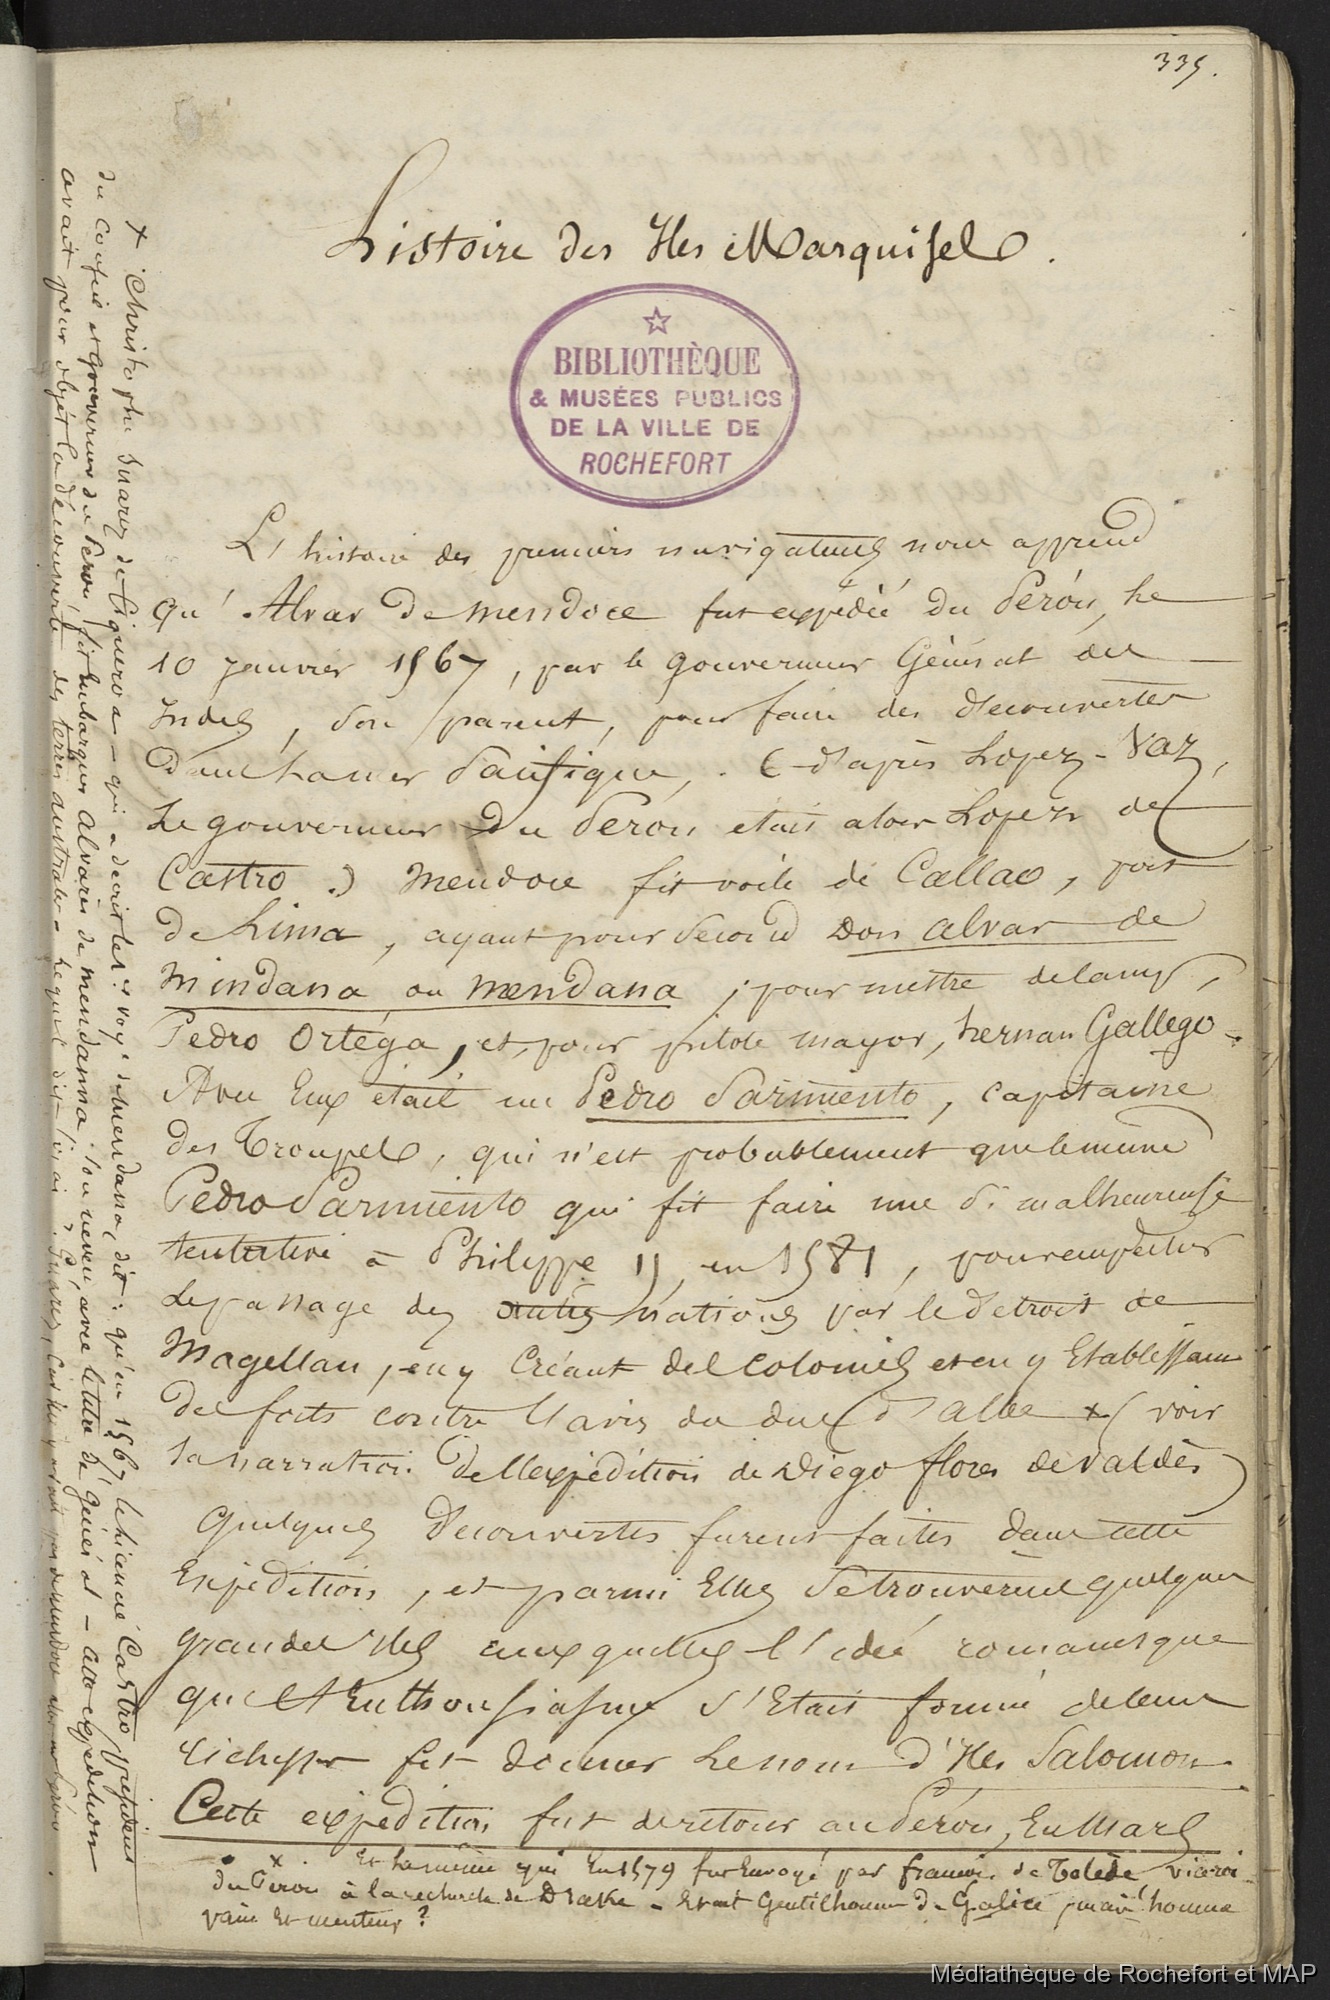 335.
histoire des Iles Marquises.
BIBLIOTHÈQUE
& MUSÉES PUBLICS
DE LA VILLE DE
ROCHEFORT
L'histoire des premiers navigateurs nous apprend
qu'Alvar de Mendoce fut expédié du Pérou, le
10 janvier 1567, par le gouverneur Général des
Indes, son parent, pour faire des découvertes
dans la mer Pacifique, (d'après Lopez-Vaz,
Le gouverneur du Pérou était alors Lopez de
Castro.) Mendoce fit voile de Callao, port
de Lima, ayant pour second Don alvar de
Mindana ou mendana ; pour mestre de camp,
Pedro Ortéga, et, pour pilote mayor, hernan Gallego.
Avec Eux était un Pedro Sarmiento, capitaine
des troupes, qui n'est probablement que le même
Pedro Sarmiento qui fit faire une si malheureuse
tentative à Philippe II, en 1581, pour empêcher
le passage des autres nations par le détroit de
Magellan, en y Créant des colonies et en y Etablissant
des forts contre l'avis du duc d'albe x (voir
la narration de l'expédition de Diego flores de Valdès)
Quelques découvertes furent faites dans cette
Expédition, et parmi Elles se trouvèrent quelques
grandes Iles auxquelles l'idée romanesque
que l'Enthousiasme s'Etait formé de leurs
richesses fit donner le nom d'Iles Salomon.
Cette expédition fut de retour au Pérou, En Mars
x. Et le même qui En 1579 fut Envoyé par francis. de Tolède, viceroi
du Pérou à la recherche de Drake - Etait Gentilhomme de Galice, mais homme
vain Et menteur ?
x Christophe Suarez de Figueroa - qui a décrit les voy. de mendana, dit : qu'en 1567 le licencié Castro, président
du Conseil et gouverneur du Pérou, fit embarquer Alvarès de mendanna, son neveu, avec le titre de général - Cette expédition
avait pour objet la découverte des terres australes -
Médiathèque de Rochefort et MAP